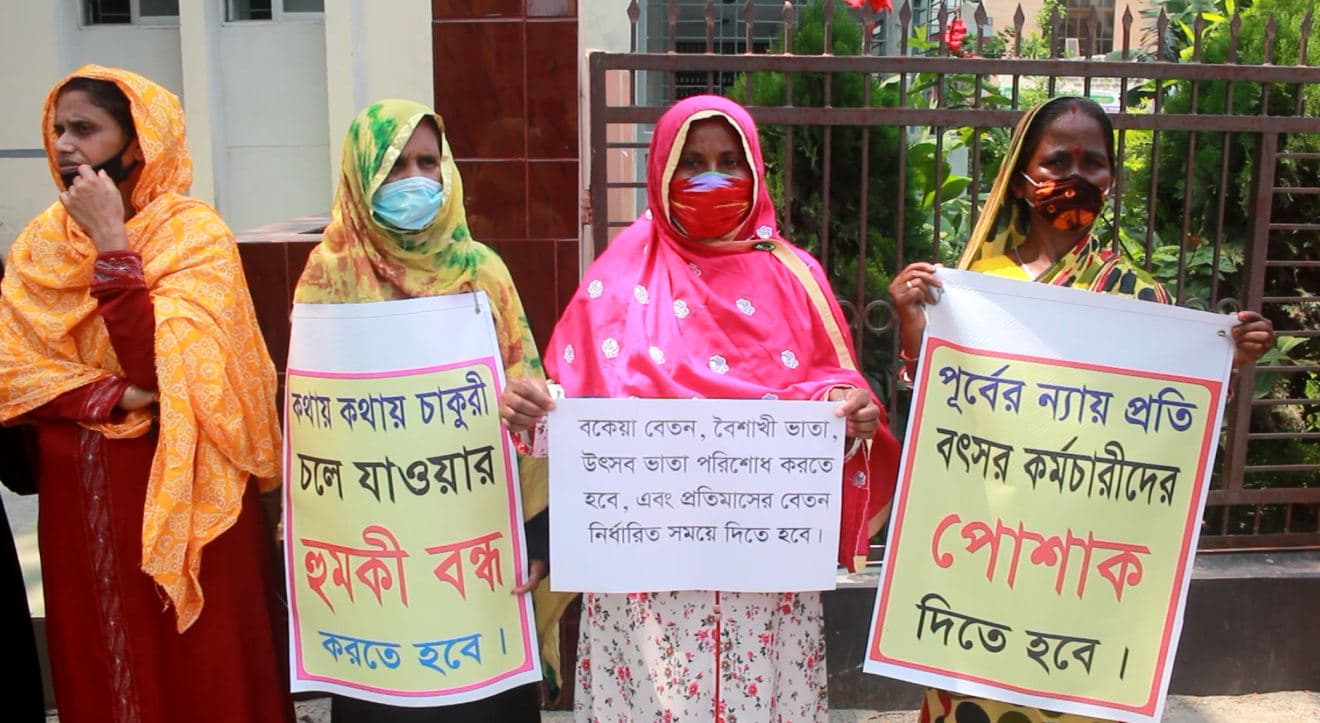 কথায় কথায় চাকুরী
চলে যাওয়ার
হুমকী বন্ধ
করতে হবে ।
বকেয়া বেতন, বৈশাখী ভাতা,
উৎসব ভাতা পরিশোধ করতে
হবে, এবং প্রতিমাসের বেতন
নির্ধারিত সময়ে দিতে হবে।
পূর্বের ন্যায় প্রতি
বৎসর কর্মচারীদের
পোশাক
দিতে হবে ।